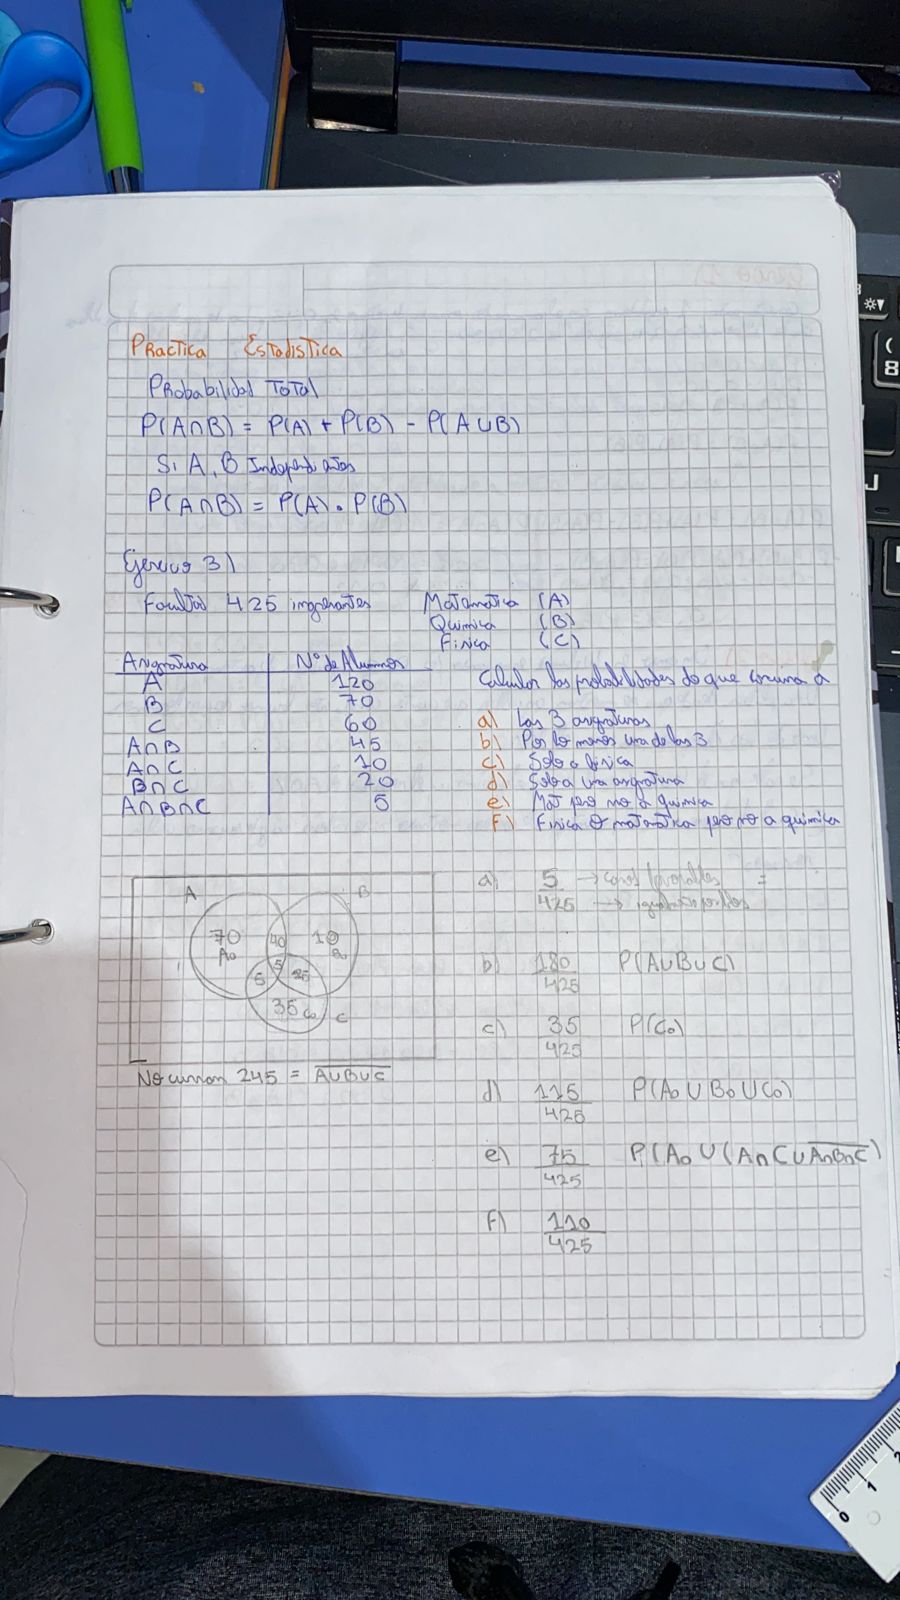 PRACTICA ESTADISTICA
Probabilidad Total
P(A∩B) = P(A) + P(B) - P(A∪B)
Si A, B Independientes
P(A∩B) = P(A) . P(B)
Ejercicio 3)
Facultad 425 ingresantes
Matematica (A)
Quimica (B)
Fisica (C)
Asignatura N° de Alumnos
A 120
B 70
C 60
A∩B 45
A∩C 10
B∩C 20
A∩B∩C 5
Calcular las probabilidades de que concurra a
a) Las 3 asignaturas
b) Por lo menos una de las 3
c) Solo a fisica
d) Solo a una asignatura
e) Mat pero no a quimica
F) Fisica o matematica pero no a quimica
A
B
70
Ao
40
10
5
5
35 Co
C
No cursan 245 = \overline{A∪B∪C}
a) 5 → casos favorables =
425 →
b) 180 P(A∪B∪C)
425
c) 35 P(Co)
425
d) 115 P(Ao ∪ Bo ∪ Co)
425
e) 75 P(Ao ∪ (A∩C ∪ \overline{A∩B∩C})
425
F) 110
425
8
J
0 1 2